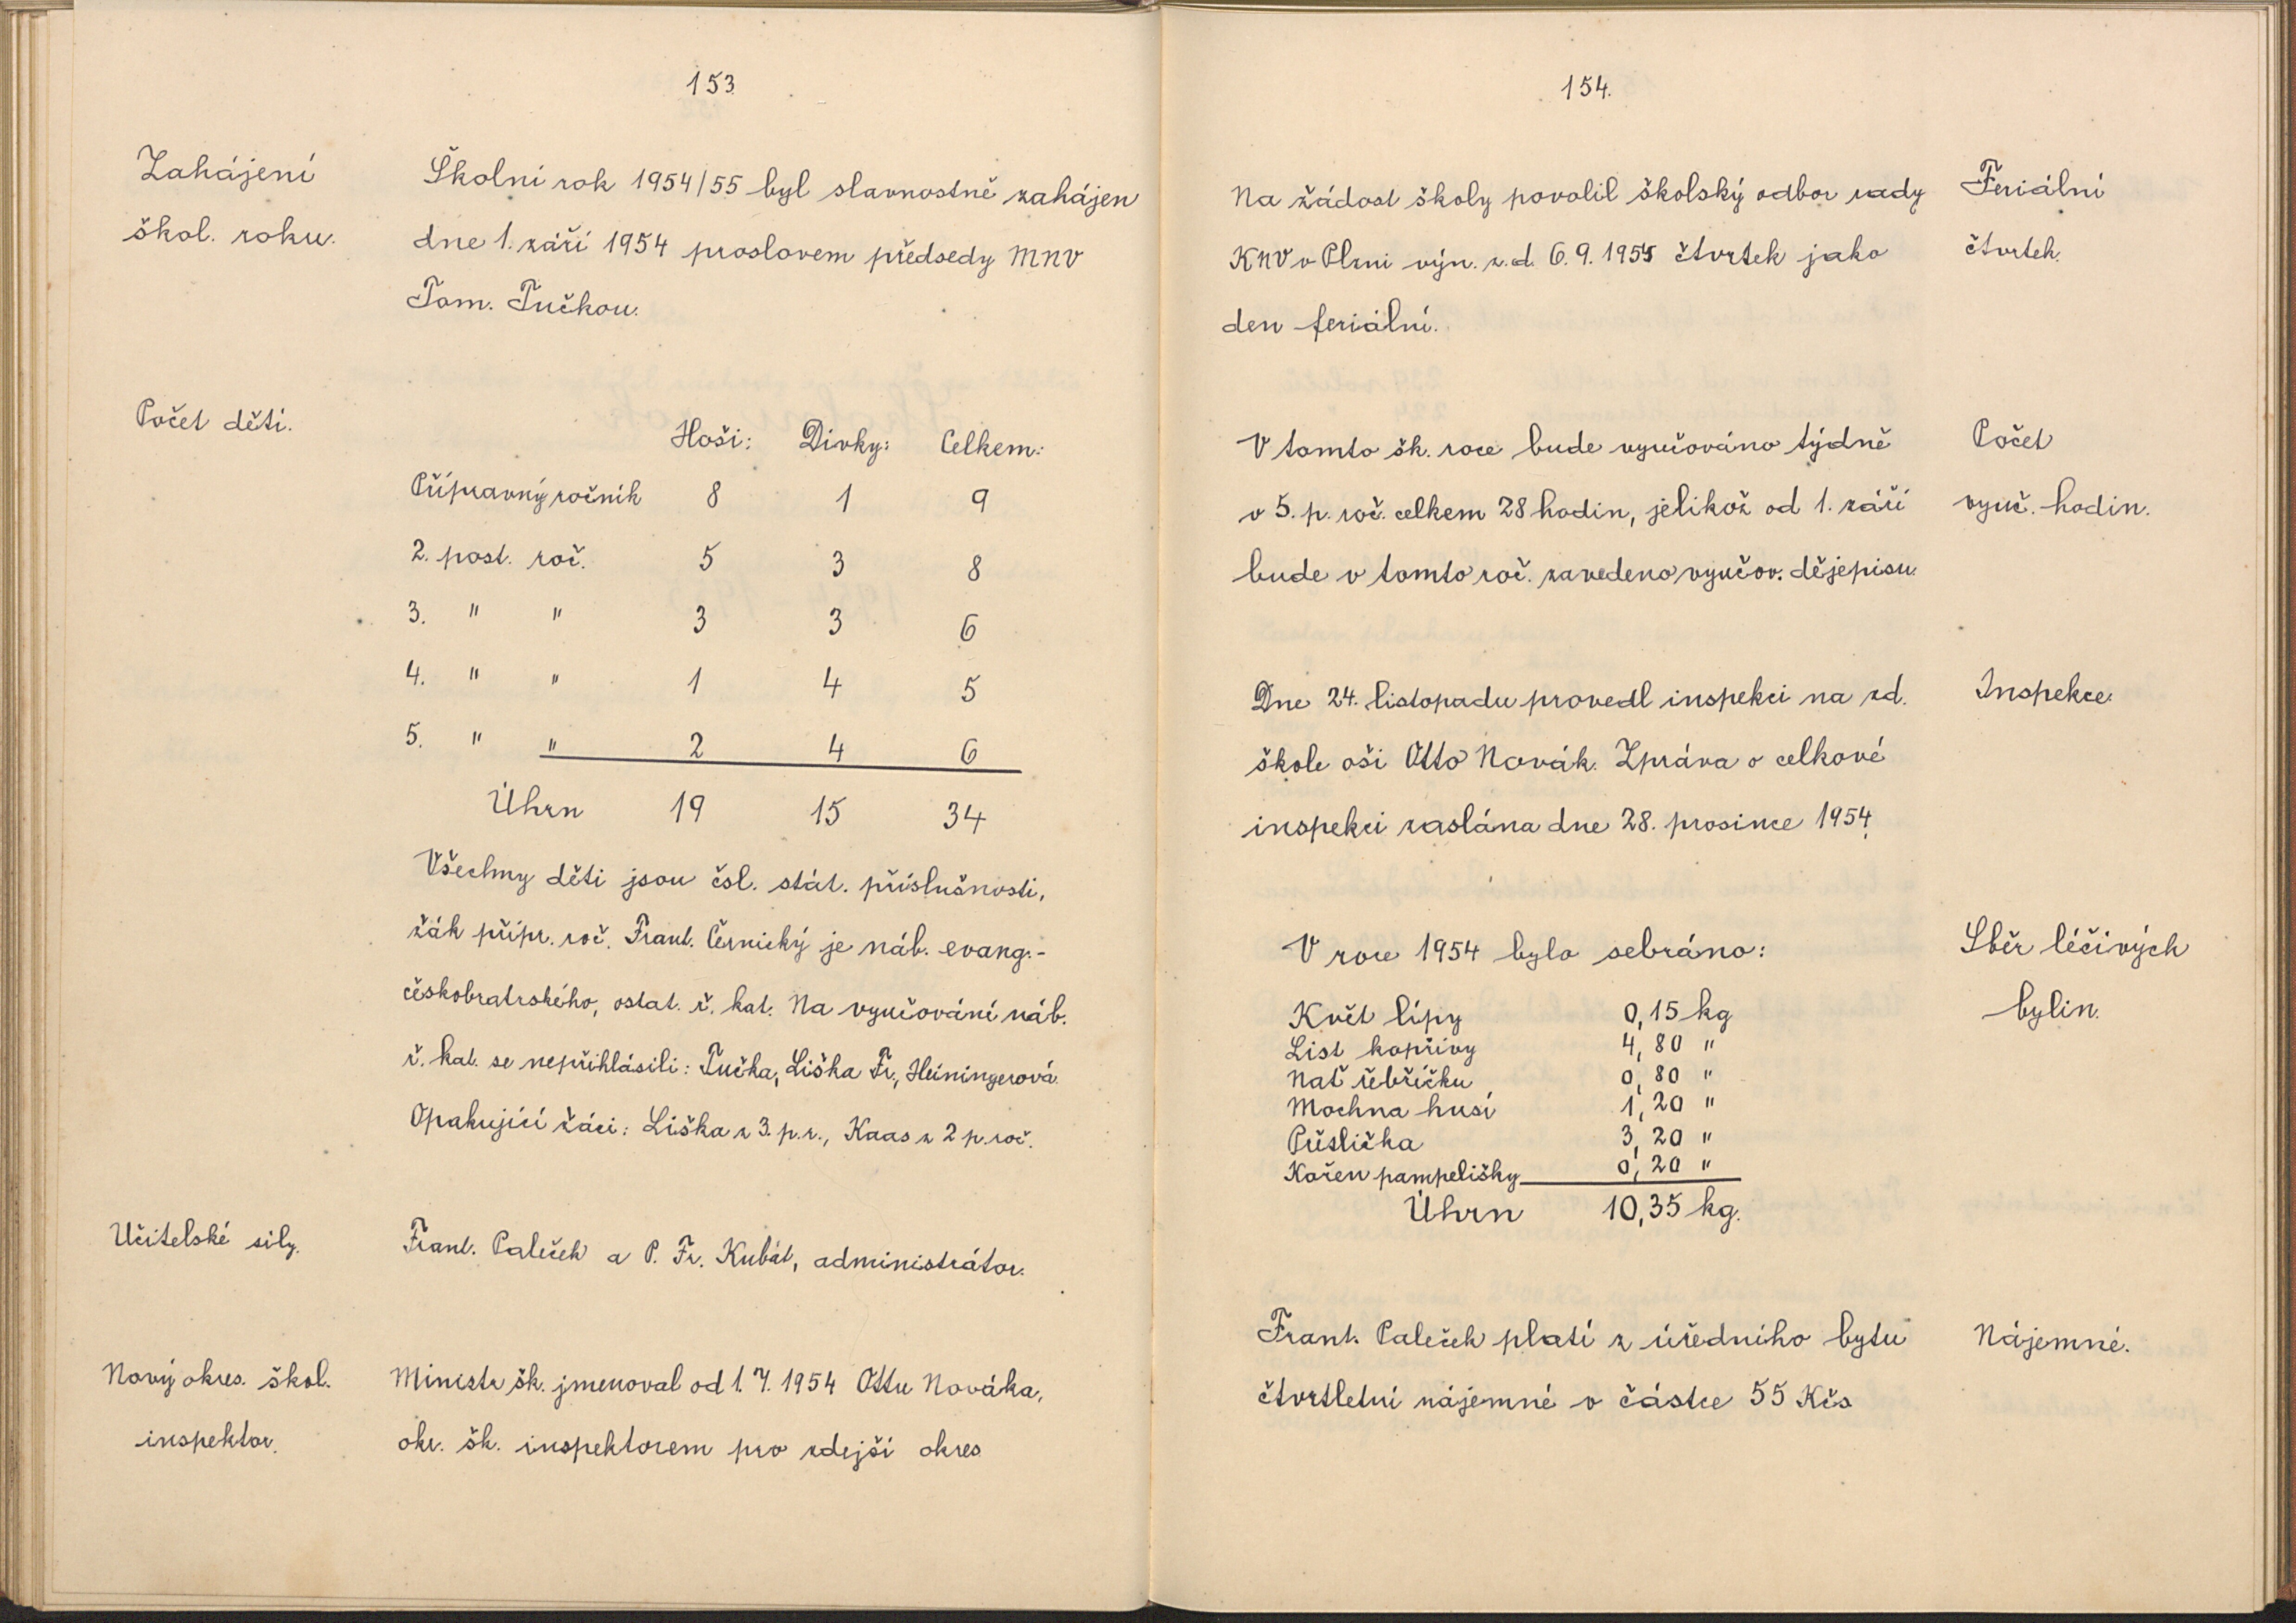 153.
Zahájení
škol. roku.
Školní rok 1954/55 byl slavnostně zahájen
dne 1. září 1954 proslovem předsedy MNV
Tom. Tučkou.
Počet dětí.
Hoši: Dívky: Celkem:
Přípravný ročník 8 1 9
2. post. roč. 5 3 8
3. " " 3 3 6
4. " " 1 4 5
5. " " 2 4 6
Úhrn 19 15 34
Všechny děti jsou čsl. stát. příslušnosti,
žák přípr. roč. Frant. Černický je náb. evang.-
českobratrského, ostat. ř. kat. Na vyučování náb.
ř. kat. se nepřihlásili: Tučka, Liška Fr., Heiningerová.
Opakující žáci: Liška z 3. p. r., Kaas z 2 p. roč.
Učitelské síly.
Frant. Paleček a P. Fr. Kubát, administrátor.
Nový okres. škol.
inspektor.
Ministr šk. jmenoval od 1. 7. 1954 Ottu Nováka,
okr. šk. inspektorem pro zdejší okres.
154.
Na žádost školy povolil školský odbor rady
KNV v Plzni výn. z. d. 6. 9. 1954 čtvrtek jako
den feriální.
Feriální
čtvrtek.
V tomto šk. roce bude vyučováno týdně
v 5. p. roč. celkem 28 hodin, jelikož od 1. září
bude v tomto roč. zavedeno vyučov. dějepisu.
Počet
vyuč. hodin.
Dne 24. listopadu provedl inspekci na zd.
škole oši Otto Novák. Zpráva o celkové
inspekci zaslána dne 28. prosince 1954.
Inspekce.
V roce 1954 bylo sebráno:
Květ lípy 0,15 kg
List kopřivy 4,80 "
Nať řebříčku 0,80 "
Mochna husí 1,20 "
Přeslička 3,20 "
Kořen pampelišky 0,20 "
Úhrn 10,35 kg.
Sběr léčivých
bylin.
Frant. Paleček platí z úředního bytu
čtvrtletní nájemné v částce 55 Kčs
Nájemné.